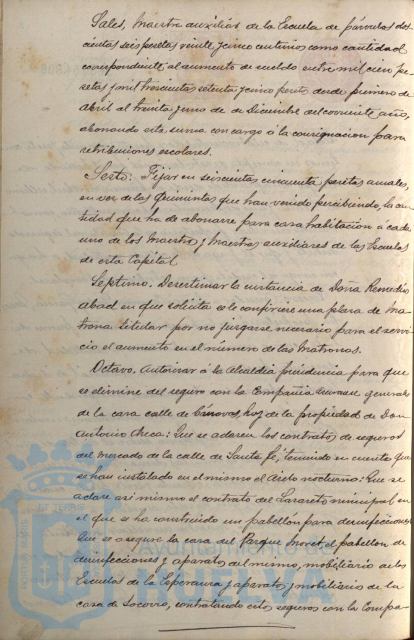 Sales, Maestro auxiliar de la Escuela de párvulos dos
cientas seis pesetas veinte y cinco centimos como cantidad
correspondiente al aumento de sueldo entre mil cien pe
setas y mil trescientas setenta y cinco pesetas desde primero de
abril al treinta y uno de de Diciembre del corriente año,
abonando esta suma con cargo á la consignacion para
retribuciones escolares.
Sexto: Fijar en seiscientas cincuenta pesetas anuales,
en vez de las quinientas que han venido percibiendo, la can
tidad que ha de abonarse para casa habitacion á cada
uno de los Maestros y Maestras auxiliares de las Escuelas
de esta Capital.
Septimo. Desestimar la instancia de Doña Remedio
abad en que solicita se le confiriese una plaza de Ma
trona titular por no juzgarse necesario para el servi
cio el aumento en el número de las Matronas.
Octavo. Autorizar á la Alcaldia presidencia para que
se elimine del seguro con la Compañia general
de la casa calle de hoy de la propiedad de Don
Antonio Checa: Que se adaren los contratos de seguros
del mercado de la calle de Santa Fé, teniendo en cuenta que
se han instalado en el mismo el Asilo nocturno: Que se
aclare asi mismo el contrato del Lazareto municipal en
el que se ha construido un pabellón para desinfecciones
Que se asegure la casa del Parque Moret, el pabellon de
desinfecciones y aparatos del mismo, mobiliario de las
Escuelas de la Esperanza y aparatos y mobiliario de la
casa de Socorro, contratando estos seguros con la Compa
Ayuntamiento de
HUELVA